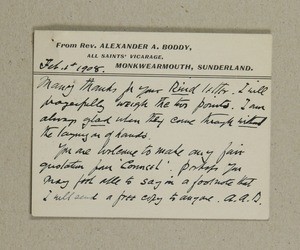 From Rev. ALEXANDER A. BODDY,
ALL SAINTS' VICARAGE,
MONKWEARMOUTH, SUNDERLAND.
Feb. 1st 1908.
Many thanks for your kind letter. I will
prayerfully weigh the two points. I am
always glad when they come through without
the laying on of hands.
You are welcome to make any fair
quotation from 'Confid'. Perhaps you
may feel able to say in a footnote that
I will send a free copy to anyone. A.A.B.